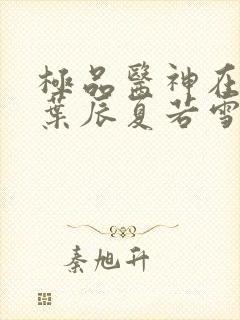 極品醫神在
葉辰夏若雪
秦旭升